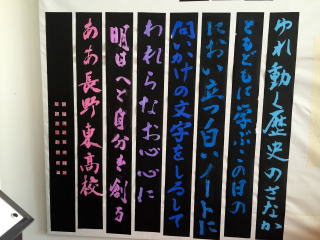 ゆれ動く歴史のさなか
ともどもに学ぶこの日の
におい立つ白いノートに
問いかけの文字をしるして
われらなお心心に
明日へと自分を創る
ああ長野東高校